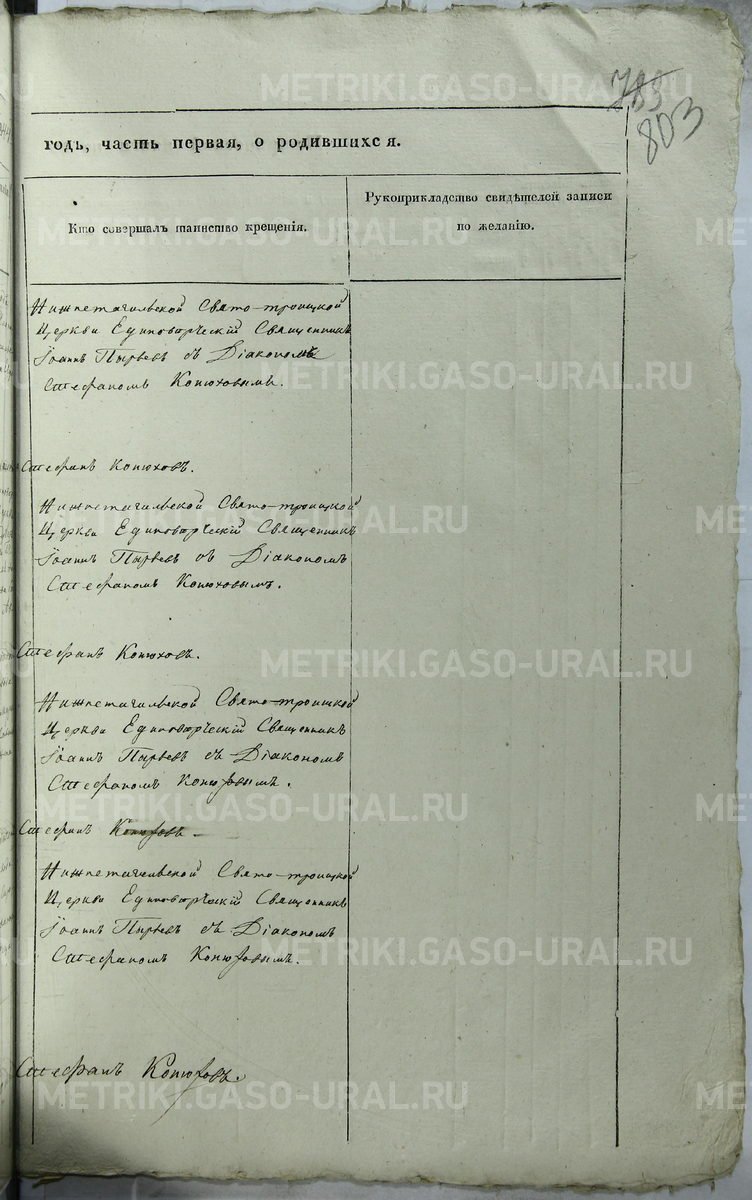 785
803
годъ, часть первая, о родившихся.
Кто совершалъ таинство крещенія.
Рукоприкладство свидѣтелей записи
по желанію.
Нижнетагильской Свято-троицкой
Церкви Единоверческій Священникъ
Іоаннъ Пырьевъ съ Діакономъ
Стефаномъ Конюховымъ.
Стефанъ Конюховъ.
Нижнетагильской Свято-троицкой
Церкви Единоверческій Священникъ
Іоаннъ Пырьевъ съ Діакономъ
Стефаномъ Конюховымъ.
Стефанъ Конюховъ.
Нижнетагильской Свято-троицкой
Церкви Единоверческій Священникъ
Іоаннъ Пырьевъ съ Діакономъ
Стефаномъ Конюховымъ.
Стефанъ Конюховъ
Нижнетагильской Свято-троицкой
Церкви Единоверческій Священникъ
Іоаннъ Пырьевъ съ Діакономъ
Стефаномъ Конюховымъ.
Стефанъ Конюховъ.
METRIKI.GASO-URAL.RU